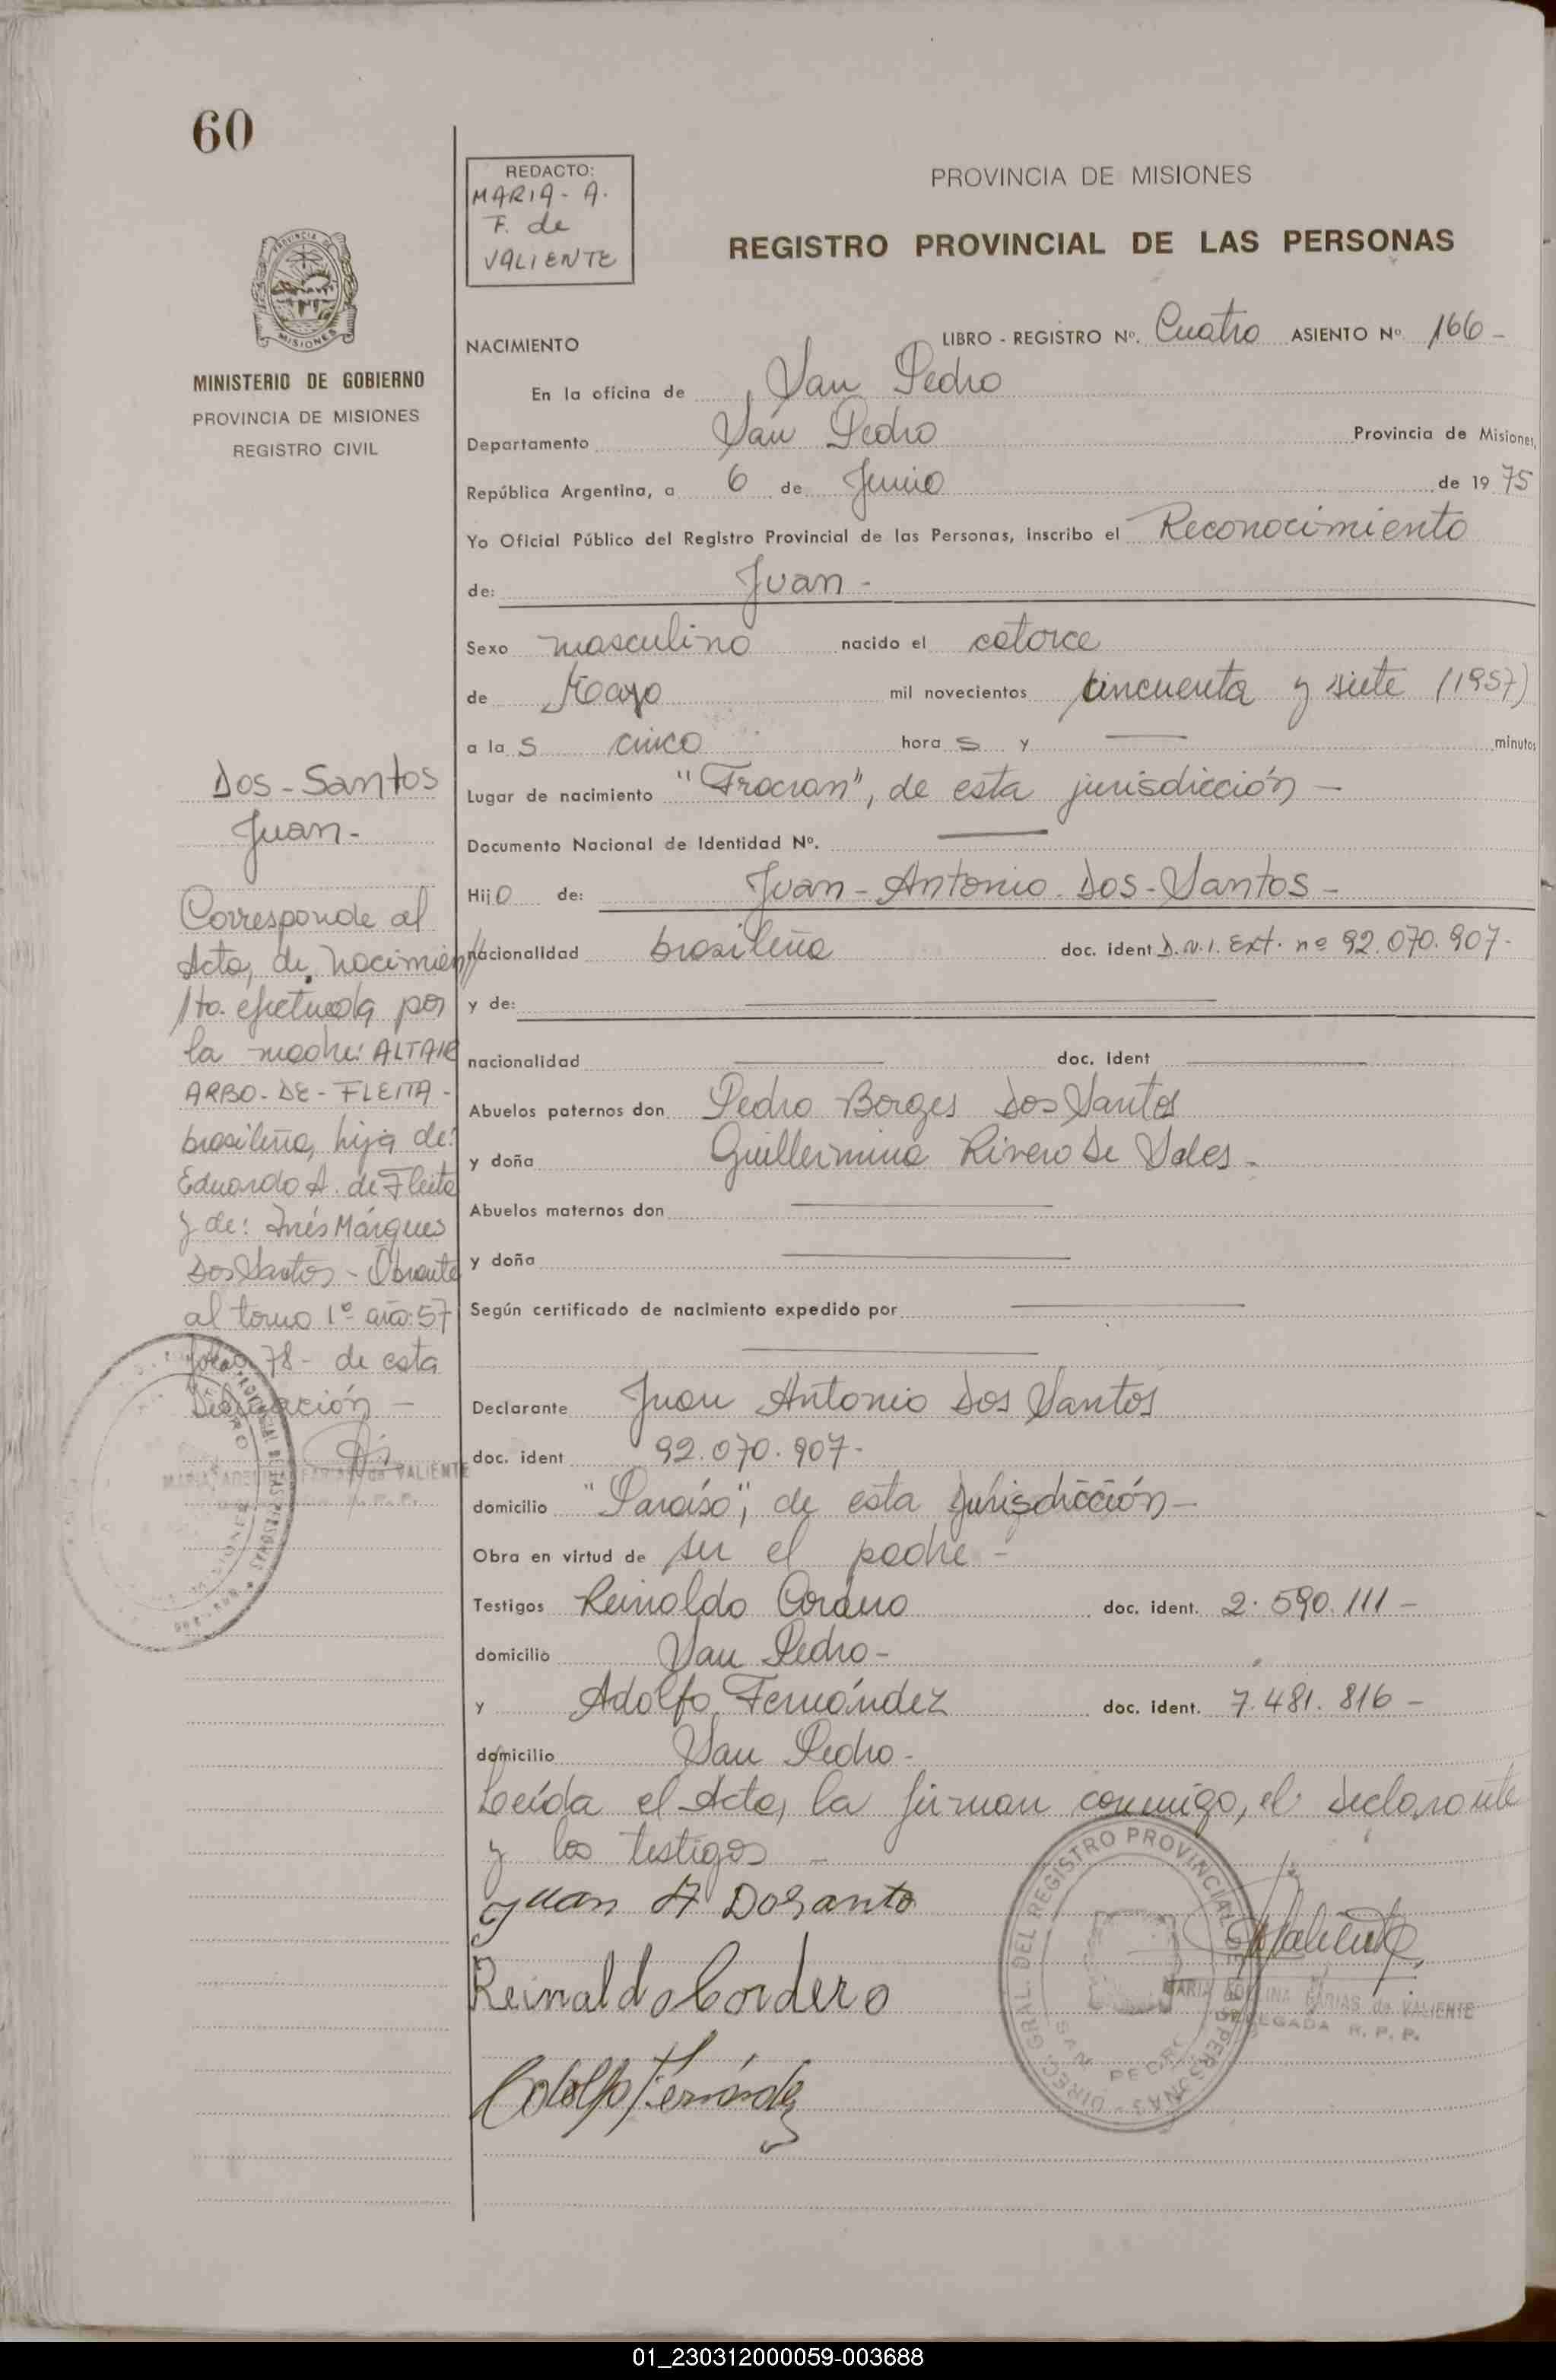 60
REDACTO:
MARIA - A.
F. de
VALIENTE
PROVINCIA DE MISIONES
REGISTRO PROVINCIAL DE LAS PERSONAS
PROVINCIA DE
MISIONES
MINISTERIO DE GOBIERNO
PROVINCIA DE MISIONES
REGISTRO CIVIL
NACIMIENTO
LIBRO - REGISTRO Nº. Cuatro ASIENTO Nº 166 -
En la oficina de San Pedro
Departamento San Pedro Provincia de Misiones,
República Argentina, a 6 de Junio de 1975
Yo Oficial Público del Registro Provincial de las Personas, inscribo el Reconocimiento
de: Juan -
Sexo masculino nacido el catorce
de Mayo mil novecientos cincuenta y siete (1957)
a la s cinco hora s y — minutos
Lugar de nacimiento "Fracran", de esta jurisdicción —
Documento Nacional de Identidad Nº. —
Hijo de: Juan - Antonio - Dos - Santos -
nacionalidad brasileña doc. ident D.N.I. Ext. nº 92.070.907-
y de: —
nacionalidad — doc. Ident —
Abuelos paternos don Pedro Borges Dos Santos
y doña Guillermina Rivero De Sales -
Abuelos maternos don —
y doña —
Según certificado de nacimiento expedido por —
Declarante Juan Antonio Dos Santos
doc. ident 92.070.907-
domicilio "Paraíso", de esta Jurisdicción —
Obra en virtud de ser el padre -
Testigos Reinaldo Cordero doc. ident. 2.590.111 -
domicilio San Pedro -
y Adolfo Fernández doc. ident. 7.481.816 -
domicilio San Pedro -
Leída el Acta, la firman conmigo, el declarante
y los testigos -
Juan A Dosanto
Reinaldo Cordero
Adolfo Fernández
Valiente
DIREC. GRAL. DEL REGISTRO PROVINCIAL DE LAS PERSONAS
SAN PEDRO
MARIA ADELINA FARIAS de VALIENTE
DELEGADA R. P. P.
Dos - Santos
Juan -
Corresponde al
Acta, de nacimien
to. efectuada por
la madre: ALTAIR
ARBO - DE - FLEITA -
brasileña, hija de:
Eduardo A. de Fleita
y de: Inés Márques
Dos Santos - Obrante
al tomo 1º año: 57
folio 78 - de esta
Delegación —
MARIA ADELINA FARIAS de VALIENTE
R. P. P.
01_230312000059-003688